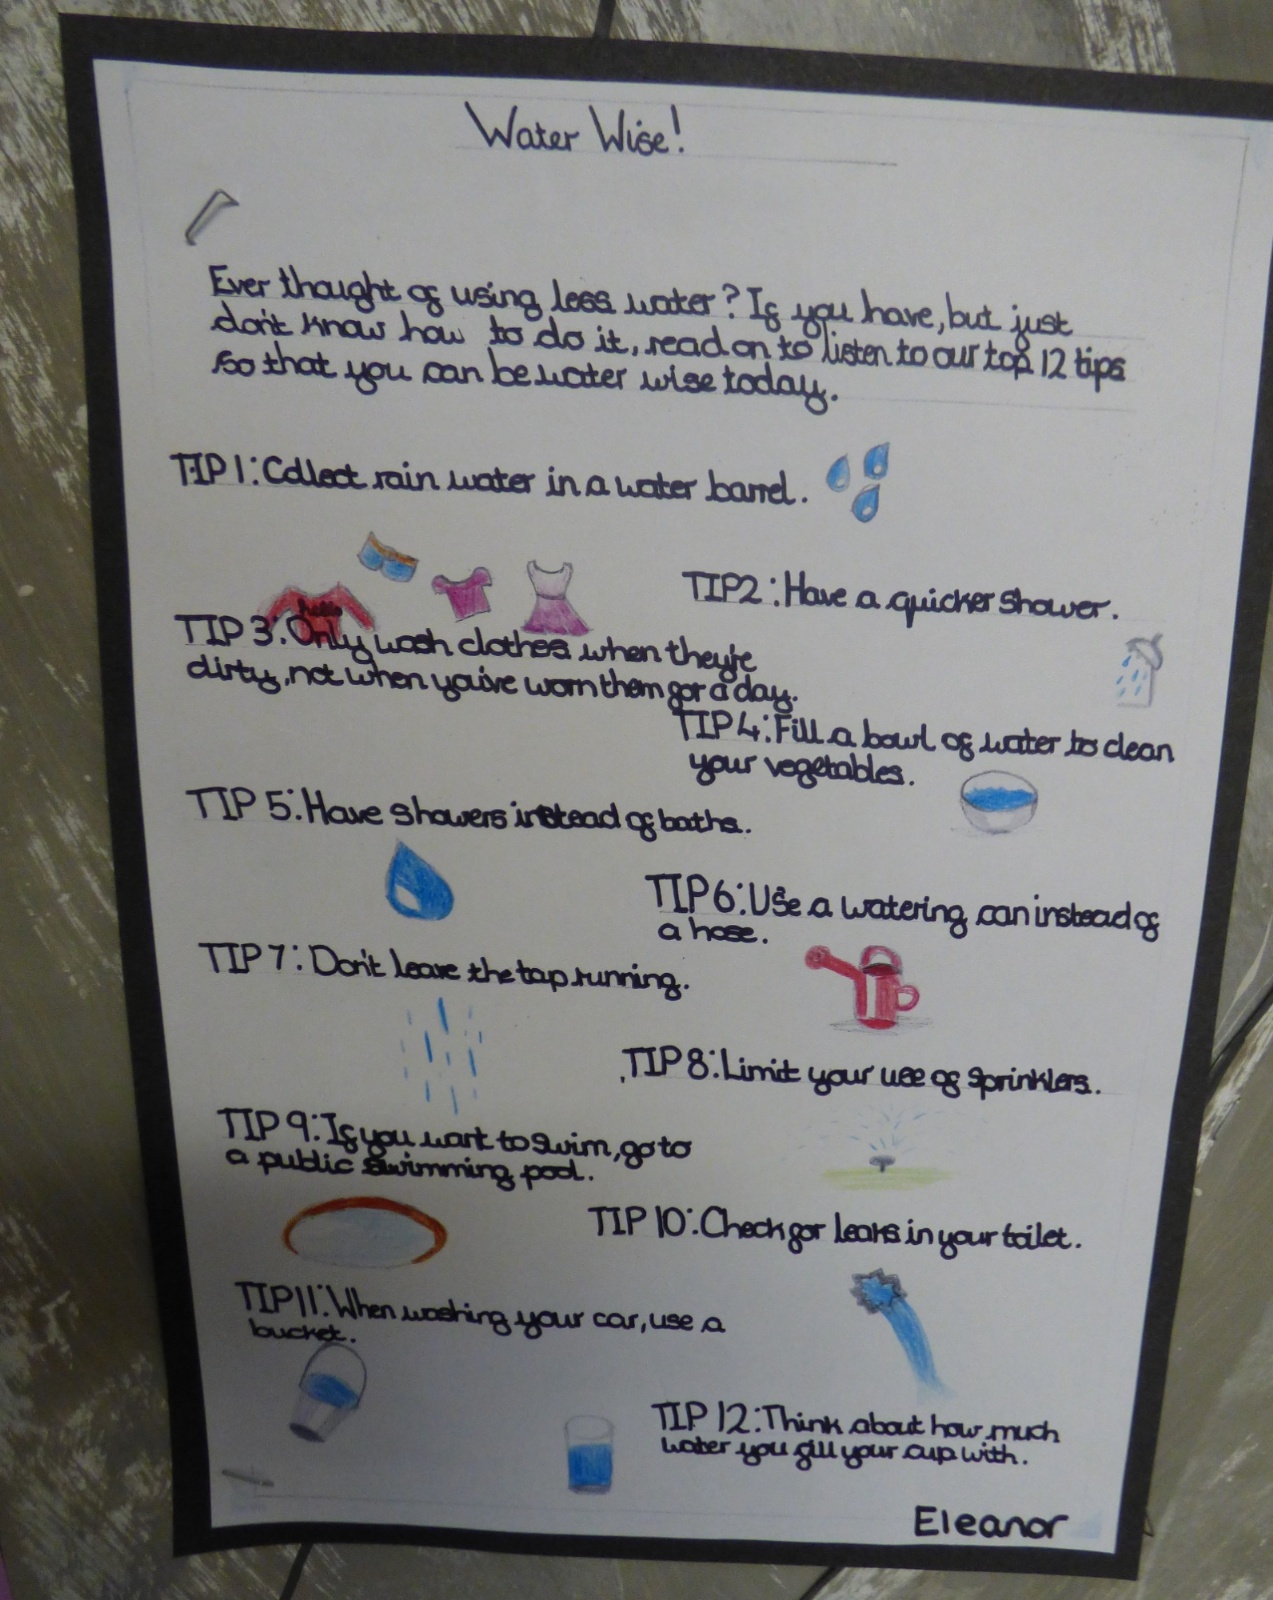 Water Wise!
Ever thought of using less water? If you have, but just
don't know how to do it, read on to listen to our top 12 tips
so that you can be water wise today.
TIP 1: Collect rain water in a water barrel.
TIP 2: Have a quicker shower.
hello
TIP 3: Only wash clothes when they're
dirty, not when you've worn them for a day.
TIP 4: Fill a bowl of water to clean
your vegetables.
TIP 5: Have showers instead of baths.
TIP 6: Use a watering can instead of
a hose.
TIP 7: Don't leave the tap running.
TIP 8: Limit your use of sprinklers.
TIP 9: If you want to swim, go to
a public swimming pool.
TIP 10: Check for leaks in your toilet.
TIP 11: When washing your car, use a
bucket.
TIP 12: Think about how much
water you fill your cup with.
Eleanor